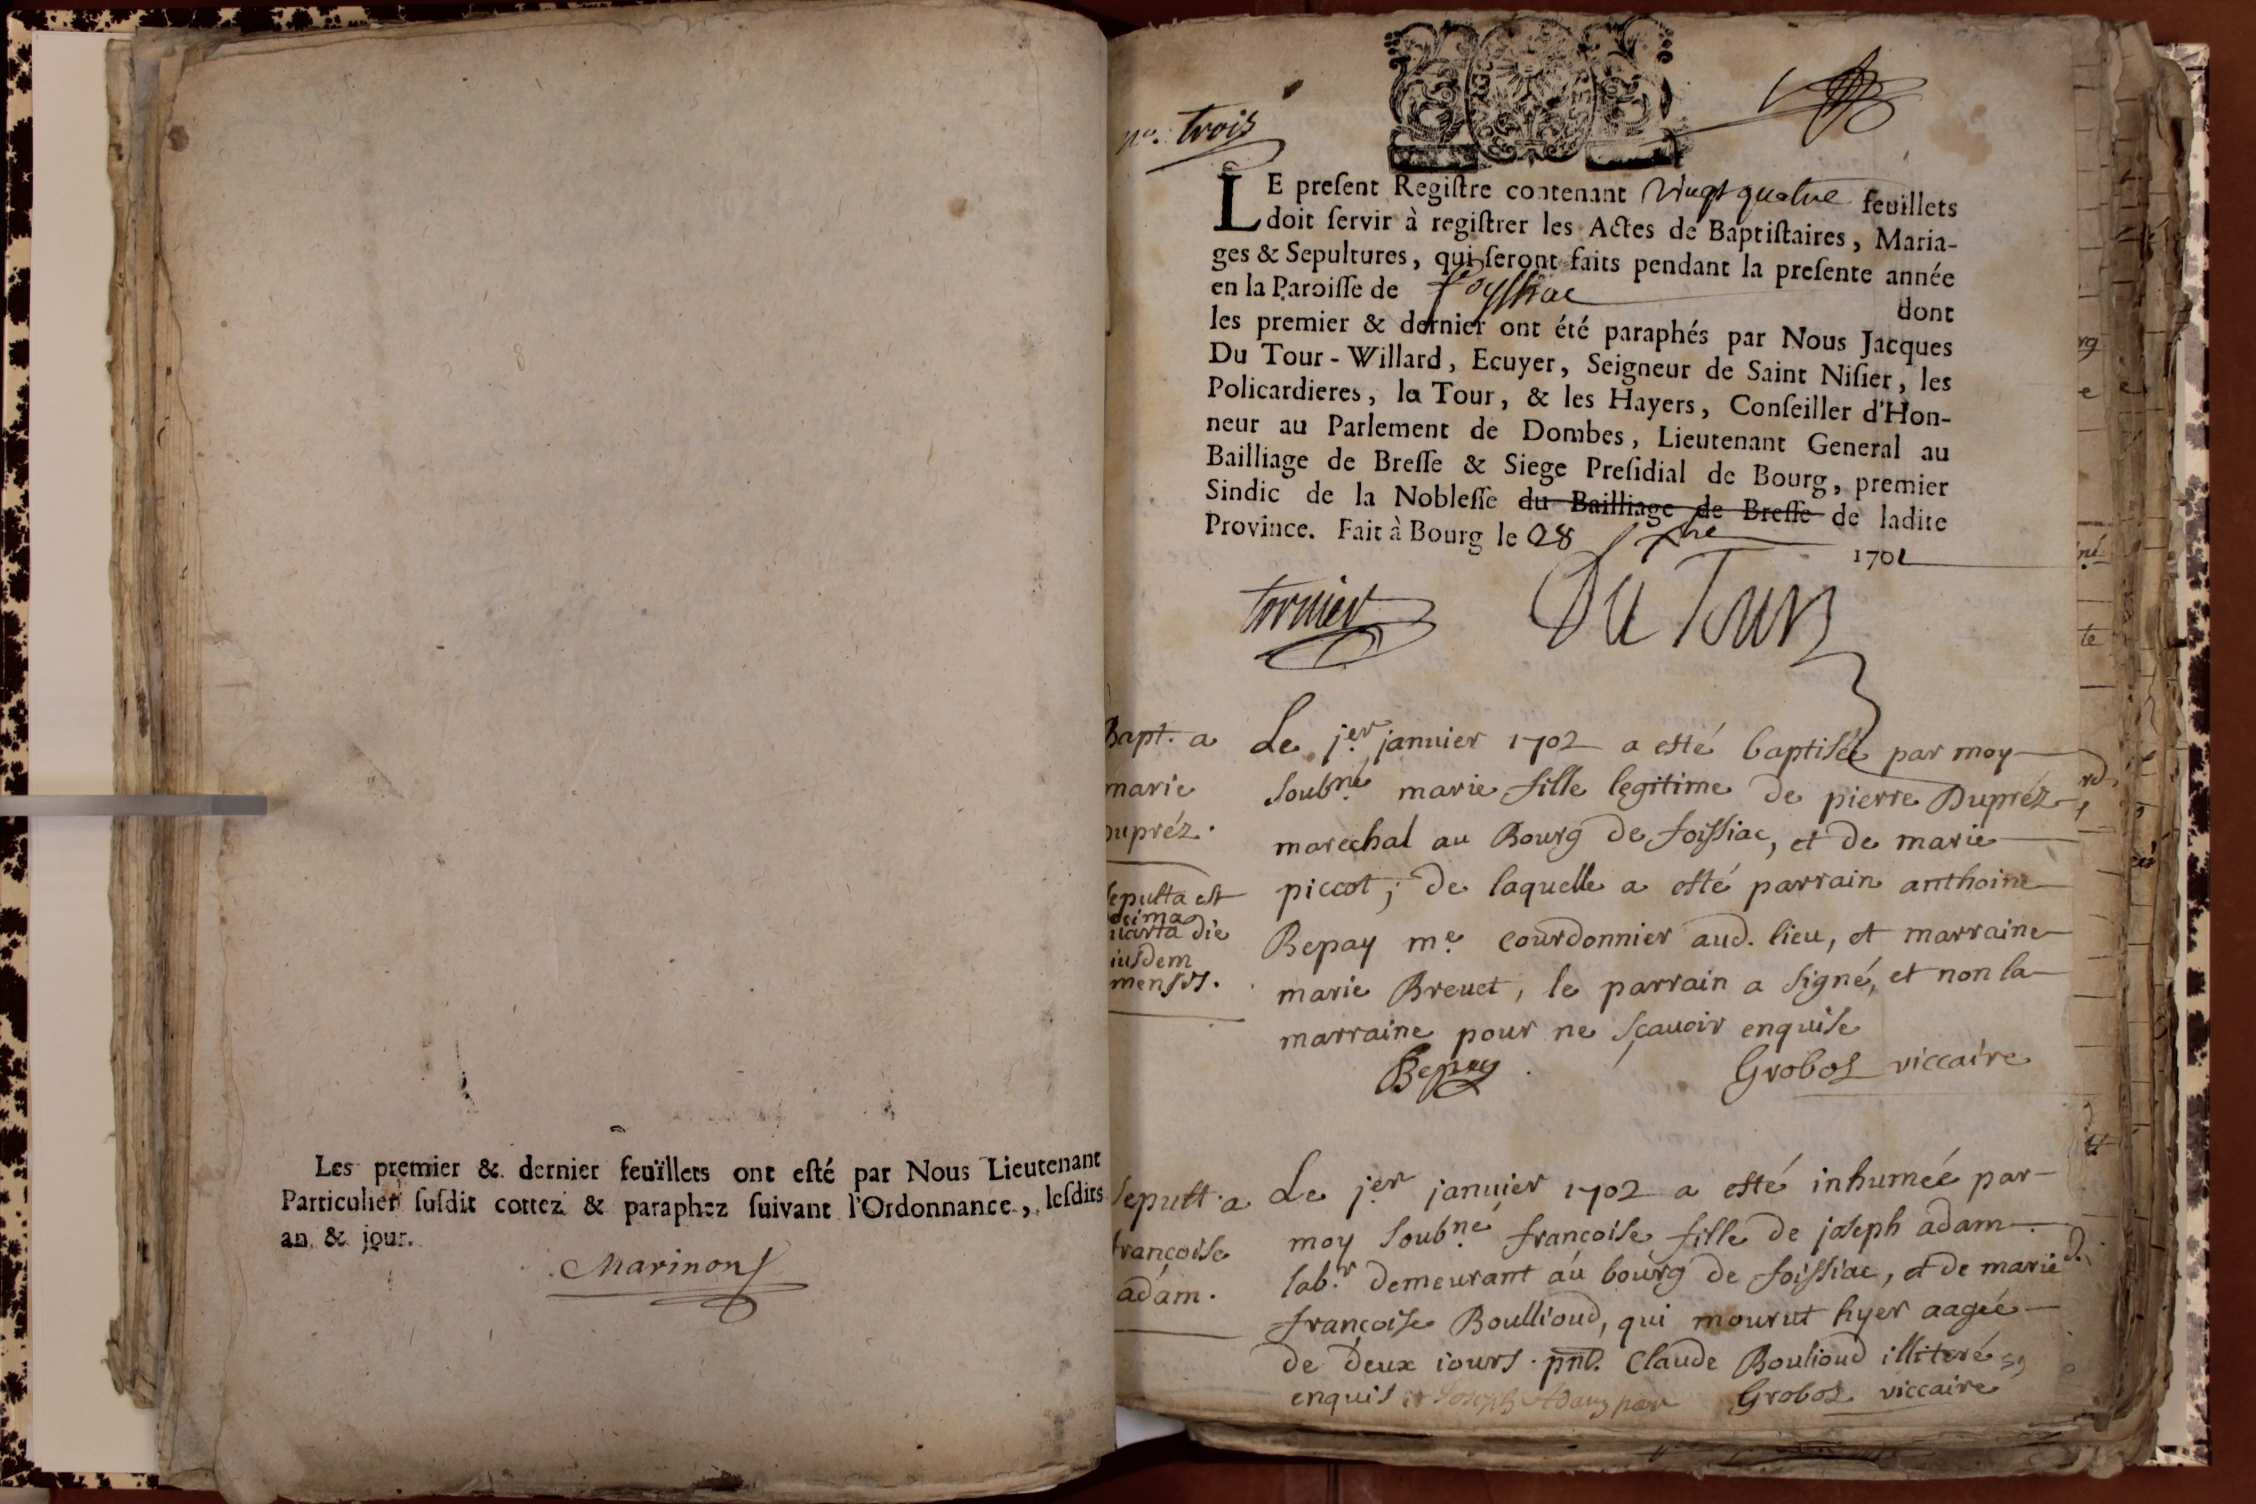 Les premier & dernier feuillets ont esté par Nous Lieutenant
Particulier susdit cottez & paraphez suivant l'Ordonnance, lesdits
an & jour.
Marinon
no. trois
LE present Registre contenant vingt quatre feuillets
doit servir à registrer les Actes de Baptistaires, Maria-
ges & Sepultures, qui seront faits pendant la presente année
en la Paroisse de foyssiac dont
les premier & dernier ont été paraphés par Nous Jacques
Du Tour-Willard, Ecuyer, Seigneur de Saint Nisier, les
Policardieres, la Tour, & les Hayers, Conseiller d'Hon-
neur au Parlement de Dombes, Lieutenant General au
Bailliage de Bresse & Siege Presidial de Bourg, premier
Sindic de la Noblesse du Bailliage de Bresse de ladite
Province. Fait à Bourg le 28 1701
tornier Du Tour
Bapt. a
marie
Dupréz.
sepulta est
decima
quarta die
eiusdem
mensis.
Le jer janvier 1702 a esté baptisée par moy
soubné marie fille legitime de pierre Dupréz
marechal au Bourg de foissiac, et de marie
piccot; de laquelle a esté parrain anthoine
Bepay me courdonnier aud. lieu, et marraine
marie Brevet, le parrain a signé, et non la
marraine pour ne sçavoir enquise
Bepay Grobos viccaire
Sepult. a
françoise
adam.
Le jer janvier 1702 a esté inhumée par
moy soubné françoise fille de joseph adam
labr demeurant au bourg de foissiac, et de marie
françoise Boullioud, qui mourut hyer aagée
de deux iours. pnt. Claude Boulioud illiteré
enquis et Joseph Adam Grobos viccaire